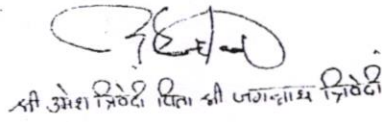 श्री उमेश त्रिवेदी पिता श्री जगन्नाथ त्रिवेदी